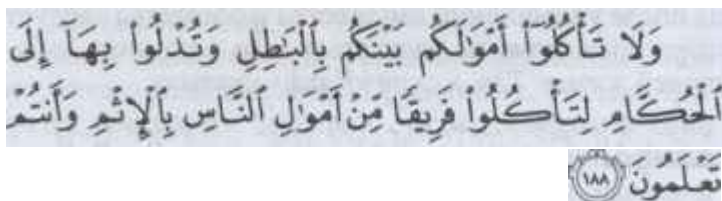 وَلَا تَأْكُلُوٓا۟ أَمْوَٰلَكُم بَيْنَكُم بِٱلْبَٰطِلِ وَتُدْلُوا۟ بِهَآ إِلَى
ٱلْحُكَّامِ لِتَأْكُلُوا۟ فَرِيقًا مِّنْ أَمْوَٰلِ ٱلنَّاسِ بِٱلْإِثْمِ وَأَنتُمْ
تَعْلَمُونَ ١٨٨